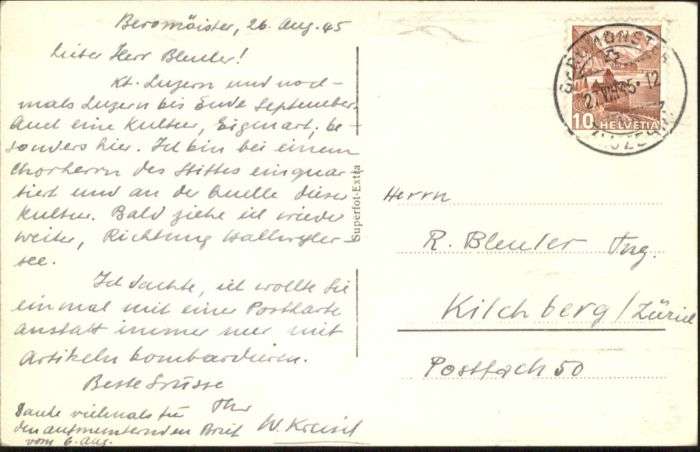 Beromünster, 26. Aug. 45
Lieber Herr Bleuler!
Kt. Luzern und noch-
mals Luzern bis Ende September.
Auch eine Kultur, Eigenart, be
sonders hier. Ich bin bei einem
Chorherrn des Stiftes einquar
tiert und an der Quelle dieser
Kultur. Bald ziehe ich wieder
weiter, Richtung Hallwyler-
see.
Ich dachte, ich wollte Sie
einmal mit einer Postkarte
anstatt immer nur mit
Artikeln bombardieren.
Beste Grüsse
Ihr
W. Kreisel
Danke vielmals für
den aufmunternden Brief
vom 6. Aug.
Superfot-Extra
10 HELVETIA
Herrn
R. Bleuler Ing.
Kilchberg/Zürich
Postfach 50